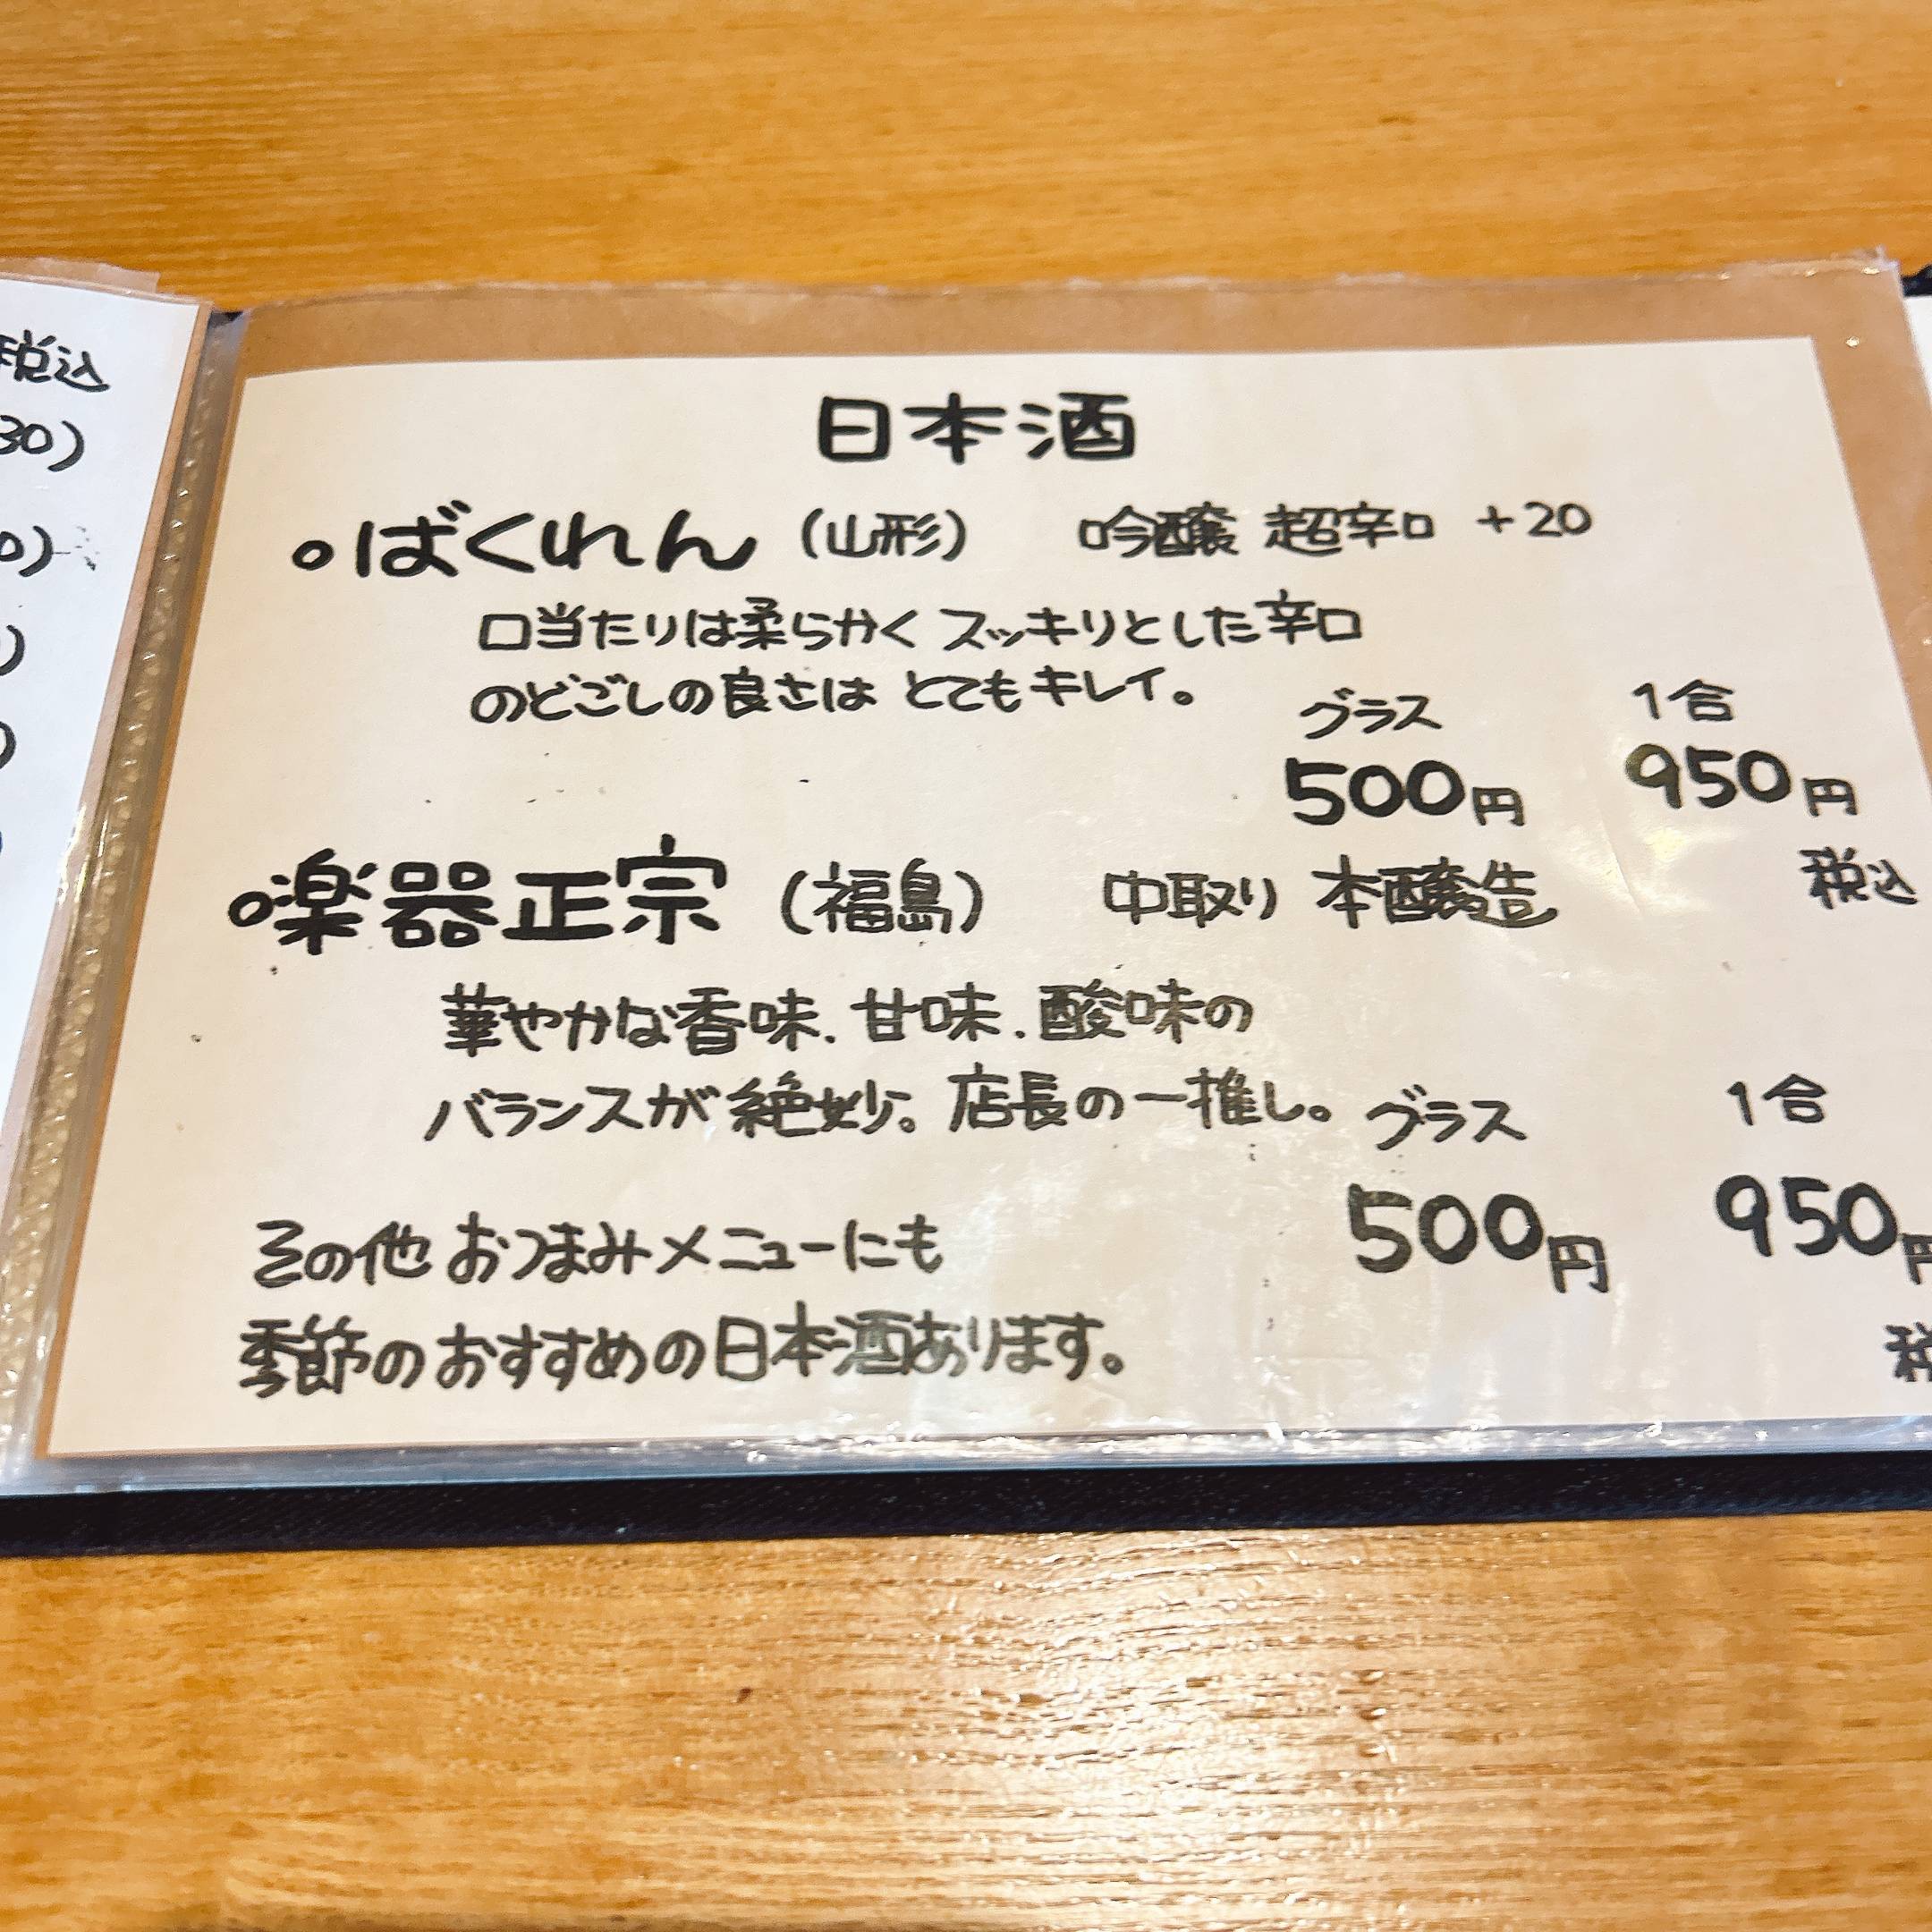 税込
30)
0)
)
)
日本酒
○ばくれん (山形) 吟醸 超辛口 +20
口当たりは柔らかく スッキリとした辛口
のどごしの良さは とてもキレイ。
グラス 1合
500円 950円
税込
○楽器正宗 (福島) 中取り 本醸造
華やかな香味、甘味、酸味の
バランスが絶妙。店長の一推し。
グラス 1合
500円 950円
税
その他 おつまみメニューにも
季節のおすすめの日本酒あります。